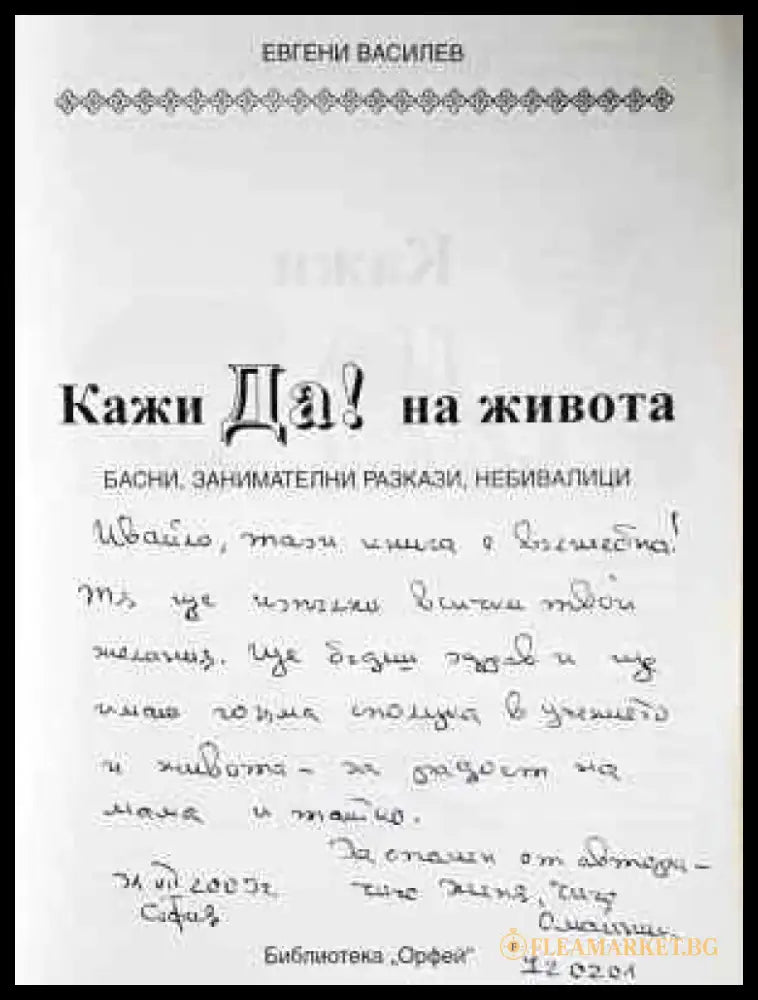 ЕВГЕНИ ВАСИЛЕВ
Кажи Да! на живота
БАСНИ, ЗАНИМАТЕЛНИ РАЗКАЗИ, НЕБИВАЛИЦИ
Ивайло, тази книга е вълшебна!
Тя ще изпълни всички твои
желания. Ще бъдеш здрав и ще
имаш голяма сполука в учението
и живота – за радост на
мама и татко.
За спомен от автора –
31 VII 2003 г.
София
FLEAMARKET.BG
Библиотека „Орфей"